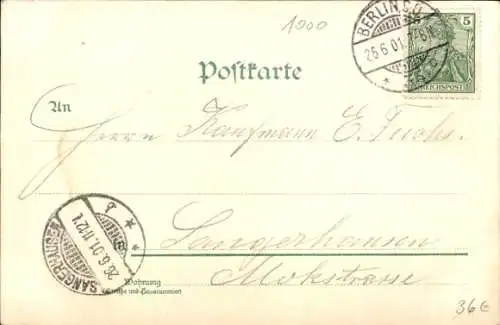 1900
BERLIN S.O.
26.6.01.
5
REICHSPOST
Postkarte
An
Herrn Kaufmann E. Fuchs.
SANGERHAUSEN
26.6.01.11-12V
b
in
Sangerhausen
Mokstrasse
Wohnung
(Straße und Hausnummer)
36€